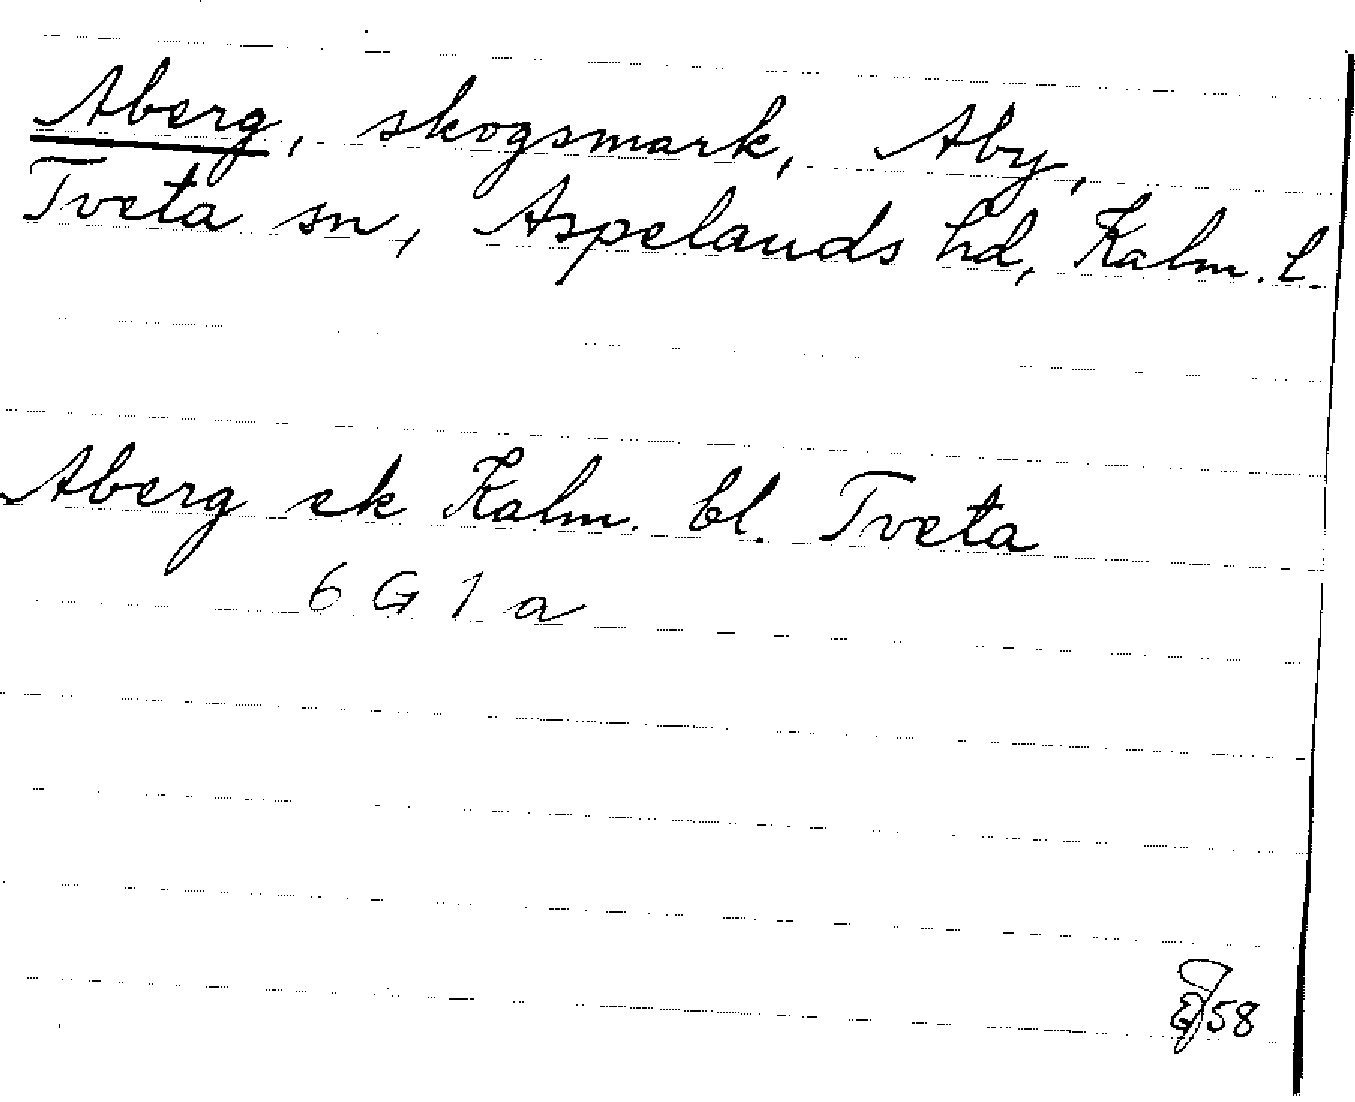 Aberg, skogsmark, Aby,
Tveta sn, Aspelands hd, Kalm. l.
Aberg ek Kalm. bl. Tveta
6 G 1 a
58